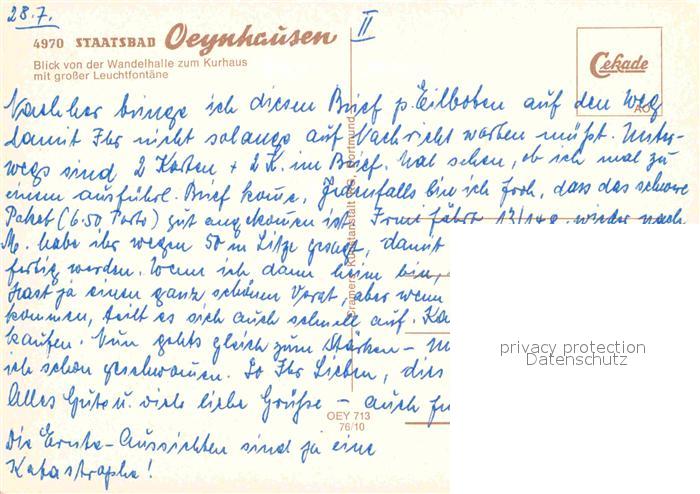 28.7.
II
4970 STAATSBAD Oeynhausen
Blick von der Wandelhalle zum Kurhaus
mit großer Leuchtfontäne
Cekade
AO
Nachher bringe ich diesen Brief p. Eilboten auf den Weg
damit Ihr nicht solange auf Nachricht warten müßt. Unter-
wegs sind 2 Karten + 2 K. im Brief. Mal sehen, ob ich mal zu
einem ausführl. Brief kome. Jedenfalls bin ich froh, dass das schwere
Paket (6.50 Porto) gut angekomen ist. fährt 13/14.8. wieder nach
M. habe ihr wegen 50 m Litze gesagt, damit
fertig werden. Wenn ich dann heim bin,
hast ja einen ganz schönen Vorrat, aber wenn
kommen, teilt es sich auch schnell auf. Ka
kaufen. Nun gehts gleich zum Stärken –
ich schon geschwomen. So Ihr Lieben, dies
Alles Gute u. viele liebe Grüße – auch
Die Ernte-Aussichten sind ja eine
Katastrophe!
Cramers Kunstanstalt Dortmund
OEY 713
76/10
privacy protection
Datenschutz